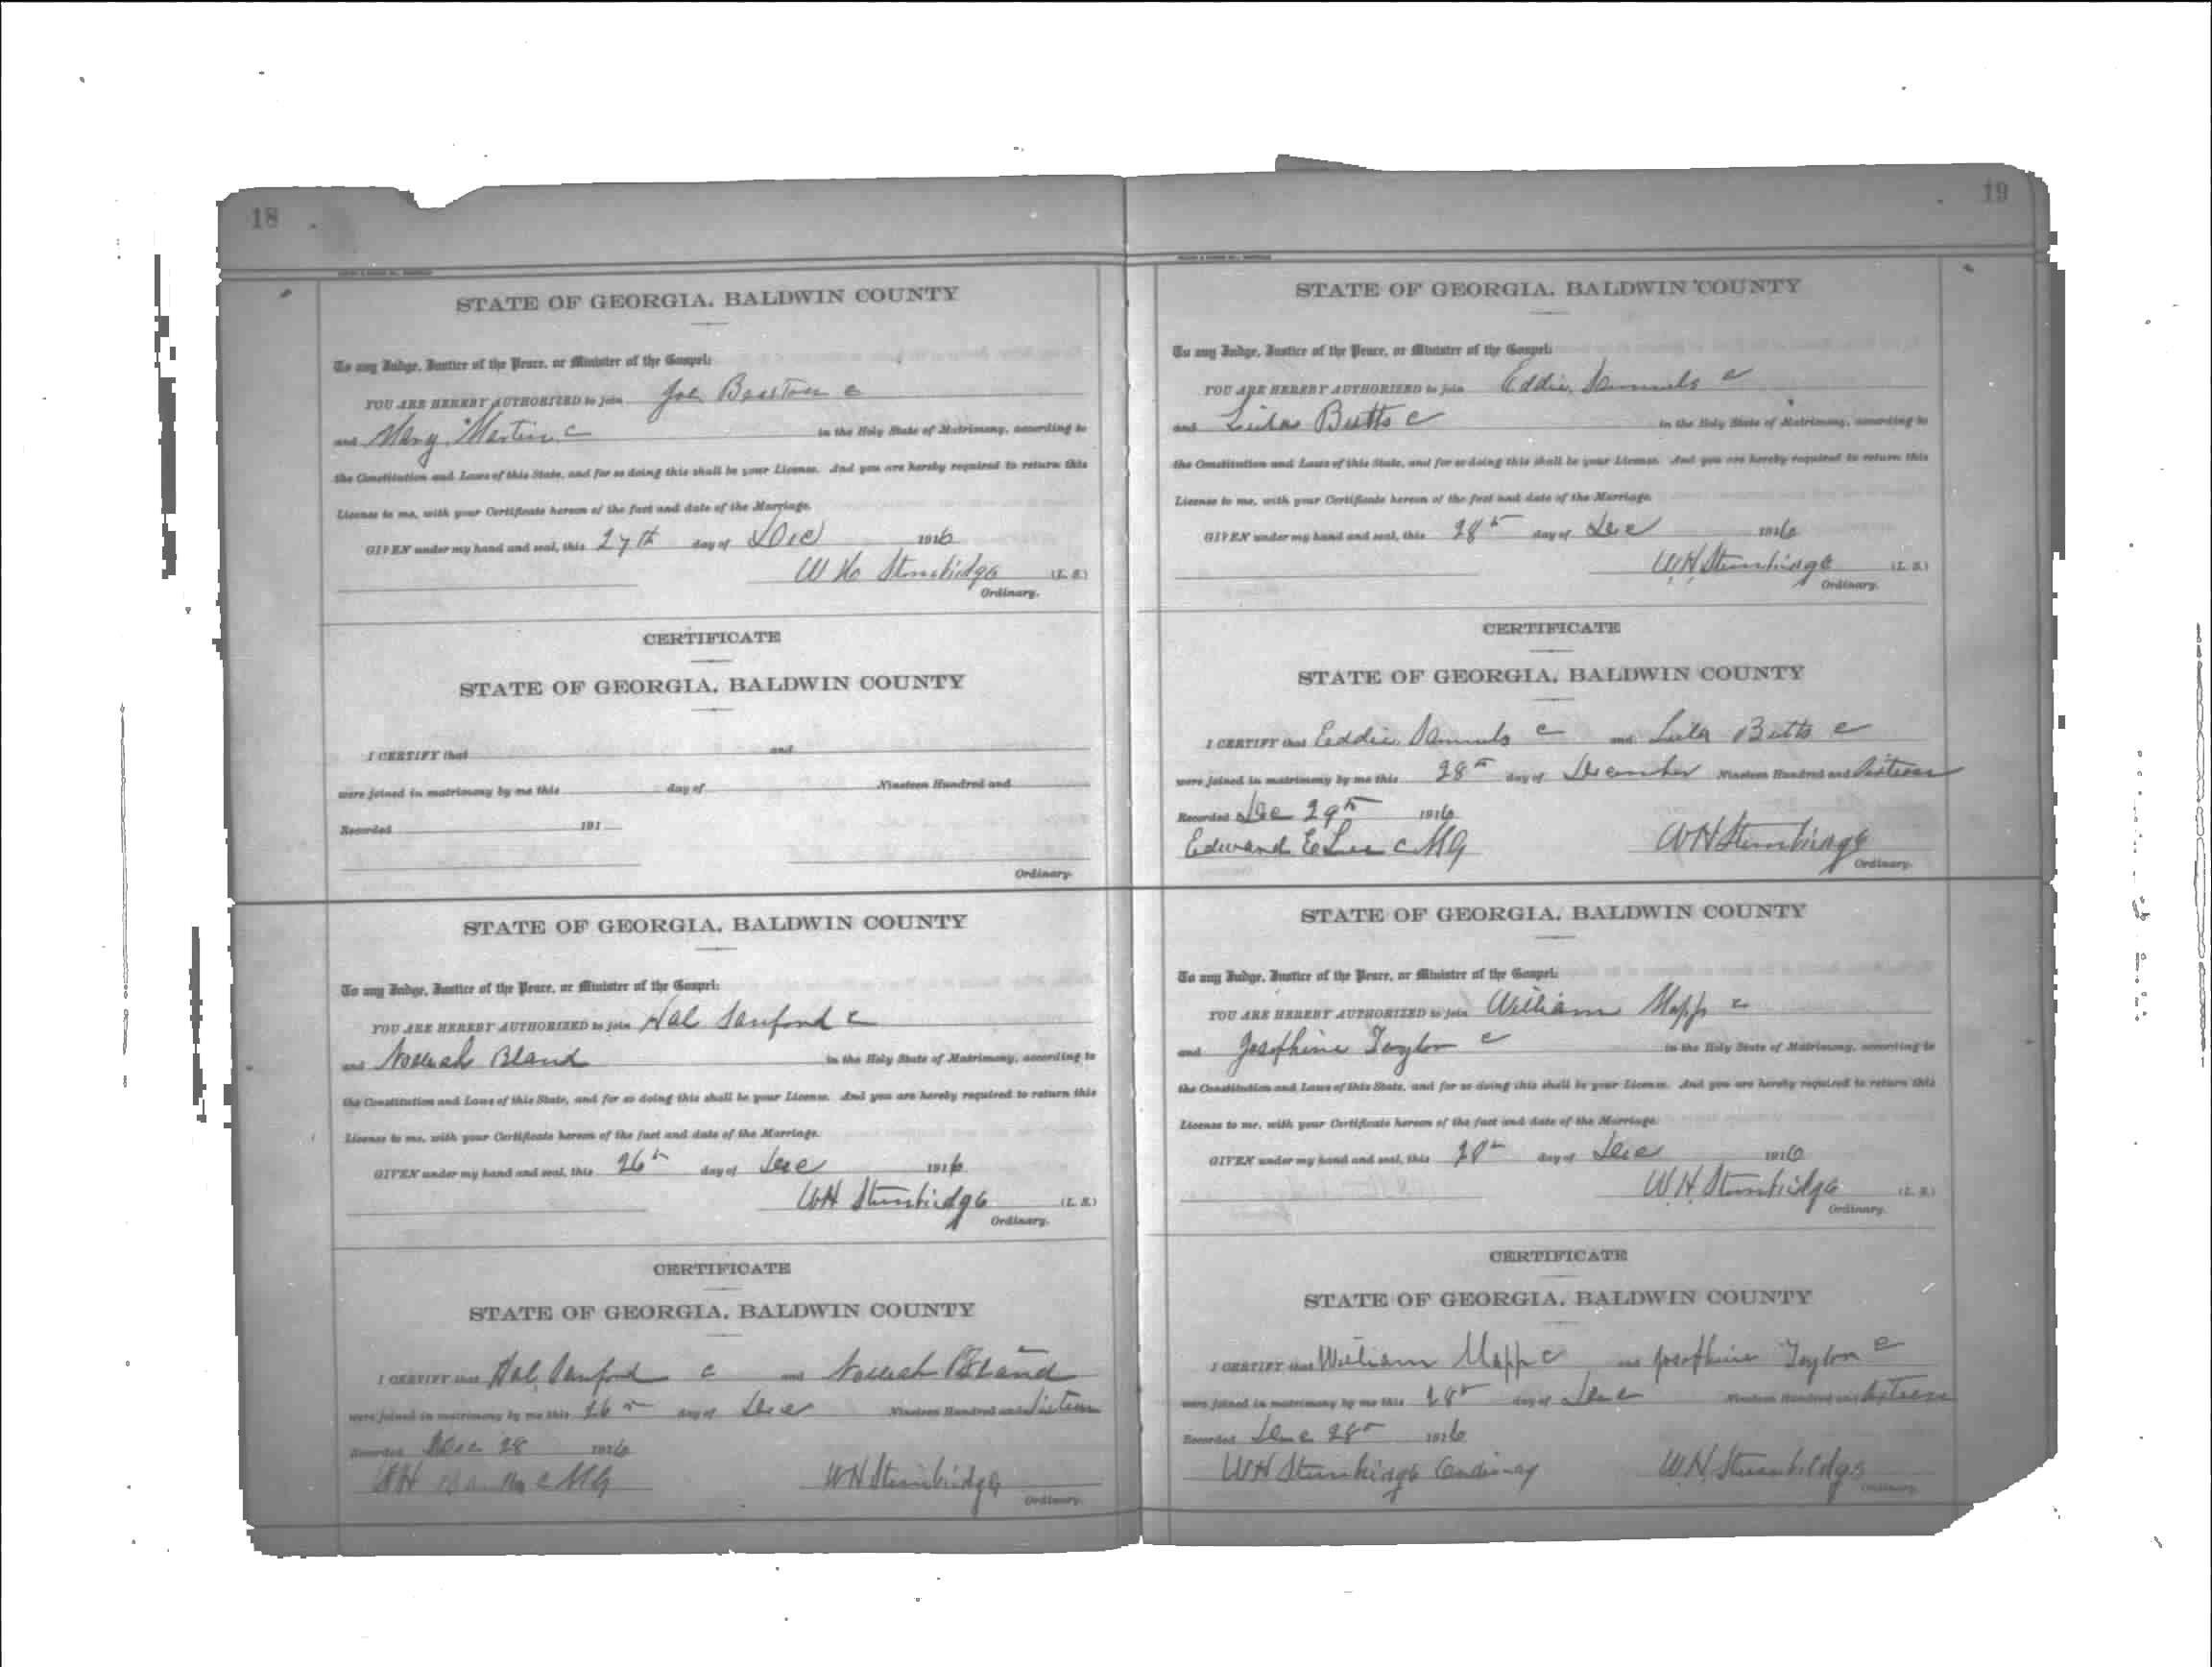 18
STATE OF GEORGIA. BALDWIN COUNTY
To any Judge, Justice of the Peace, or Minister of the Gospel:
YOU ARE HEREBY AUTHORIZED to join Joe c
and Mary Martin c in the Holy State of Matrimony, according to
the Constitution and Laws of this State, and for so doing this shall be your License. And you are hereby required to return this
License to me, with your Certificate hereon of the fact and date of the Marriage.
GIVEN under my hand and seal, this 27th day of Dec 1916
W H Stembridge (L. S.)
Ordinary.
CERTIFICATE
STATE OF GEORGIA. BALDWIN COUNTY
I CERTIFY that and
were joined in matrimony by me this day of Nineteen Hundred and
Recorded 191
Ordinary.
STATE OF GEORGIA. BALDWIN COUNTY
To any Judge, Justice of the Peace, or Minister of the Gospel:
YOU ARE HEREBY AUTHORIZED to join Hal Sanford c
and Bland in the Holy State of Matrimony, according to
the Constitution and Laws of this State, and for so doing this shall be your License. And you are hereby required to return this
License to me, with your Certificate hereon of the fact and date of the Marriage.
GIVEN under my hand and seal, this 26th day of Dec 1916
WH Stembridge (L. S.)
Ordinary.
CERTIFICATE
STATE OF GEORGIA. BALDWIN COUNTY
I CERTIFY that Hal Sanford c and Bland
were joined in matrimony by me this 26th day of Dec Nineteen Hundred and Sixteen
Recorded Dec 28 1916
c MG WH Stembridge
Ordinary.
19
STATE OF GEORGIA. BALDWIN COUNTY
To any Judge, Justice of the Peace, or Minister of the Gospel:
YOU ARE HEREBY AUTHORIZED to join Eddie Samuels c
and Lula Butts c in the Holy State of Matrimony, according to
the Constitution and Laws of this State, and for so doing this shall be your License. And you are hereby required to return this
License to me, with your Certificate hereon of the fact and date of the Marriage.
GIVEN under my hand and seal, this 28th day of Dec 1916
WH Stembridge (L. S.)
Ordinary.
CERTIFICATE
STATE OF GEORGIA. BALDWIN COUNTY
I CERTIFY that Eddie Samuels c and Lula Butts c
were joined in matrimony by me this 28th day of December Nineteen Hundred and Sixteen
Recorded Dec 29th 1916
Edward E Lee c MG WH Stembridge
Ordinary.
STATE OF GEORGIA. BALDWIN COUNTY
To any Judge, Justice of the Peace, or Minister of the Gospel:
YOU ARE HEREBY AUTHORIZED to join William Mapp c
and Josephine Taylor c in the Holy State of Matrimony, according to
the Constitution and Laws of this State, and for so doing this shall be your License. And you are hereby required to return this
License to me, with your Certificate hereon of the fact and date of the Marriage.
GIVEN under my hand and seal, this 28th day of Dec 1916
W.H. Stembridge (L. S.)
Ordinary.
CERTIFICATE
STATE OF GEORGIA. BALDWIN COUNTY
I CERTIFY that William Mapp c and Josephine Taylor c
were joined in matrimony by me this 28th day of Dec Nineteen Hundred and Sixteen
Recorded Dec 28th 1916
WH Stembridge Ordinary W.H. Stembridge
Ordinary.